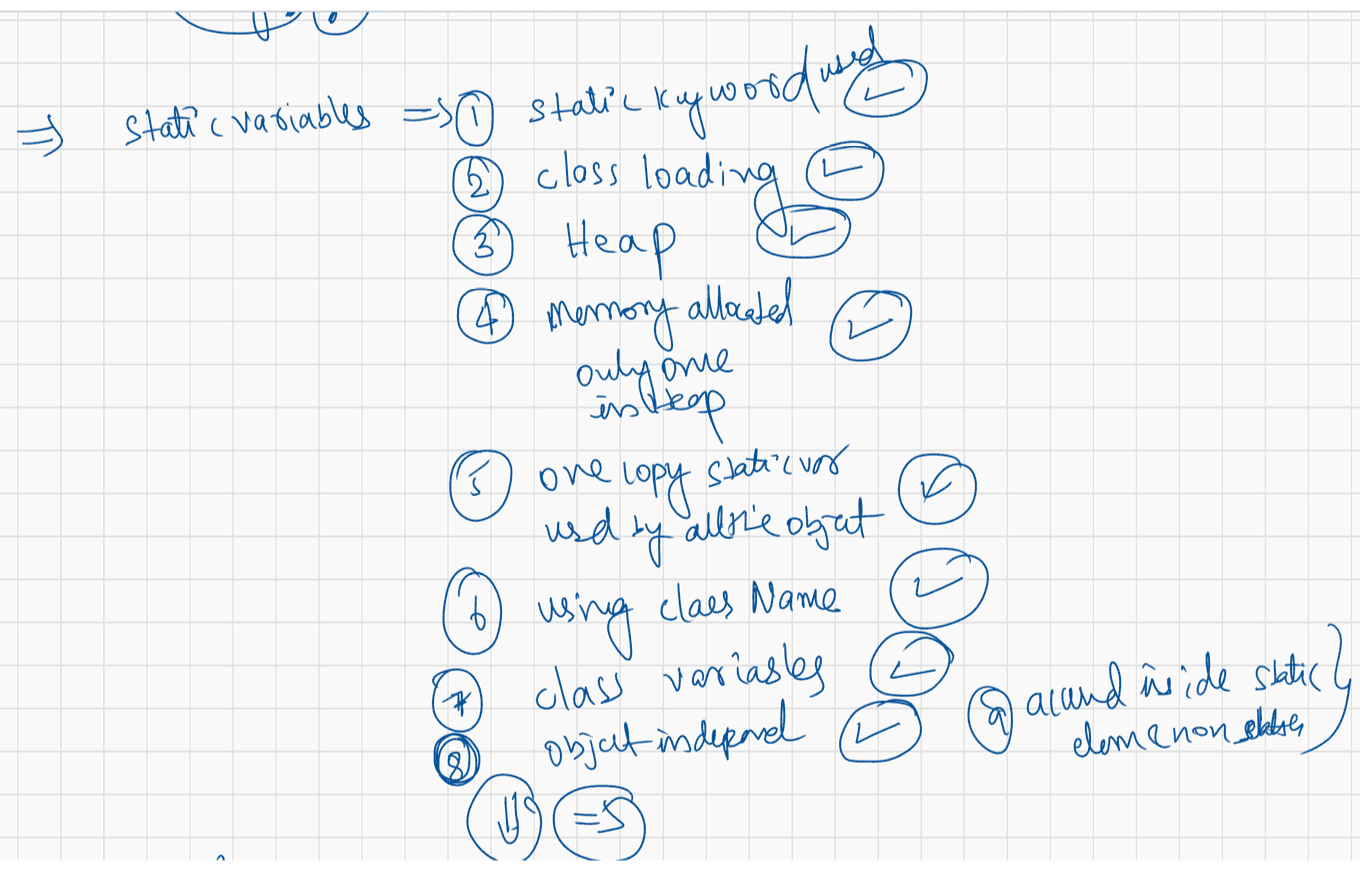 => static variables => ① static keyword used
② class loading
③ Heap
④ Memory allocated
only one
in Heap
⑤ one copy static var
used by all the object
⑥ using class Name
⑦ class variables
⑧ object independ
⑨ inside static
eleme non